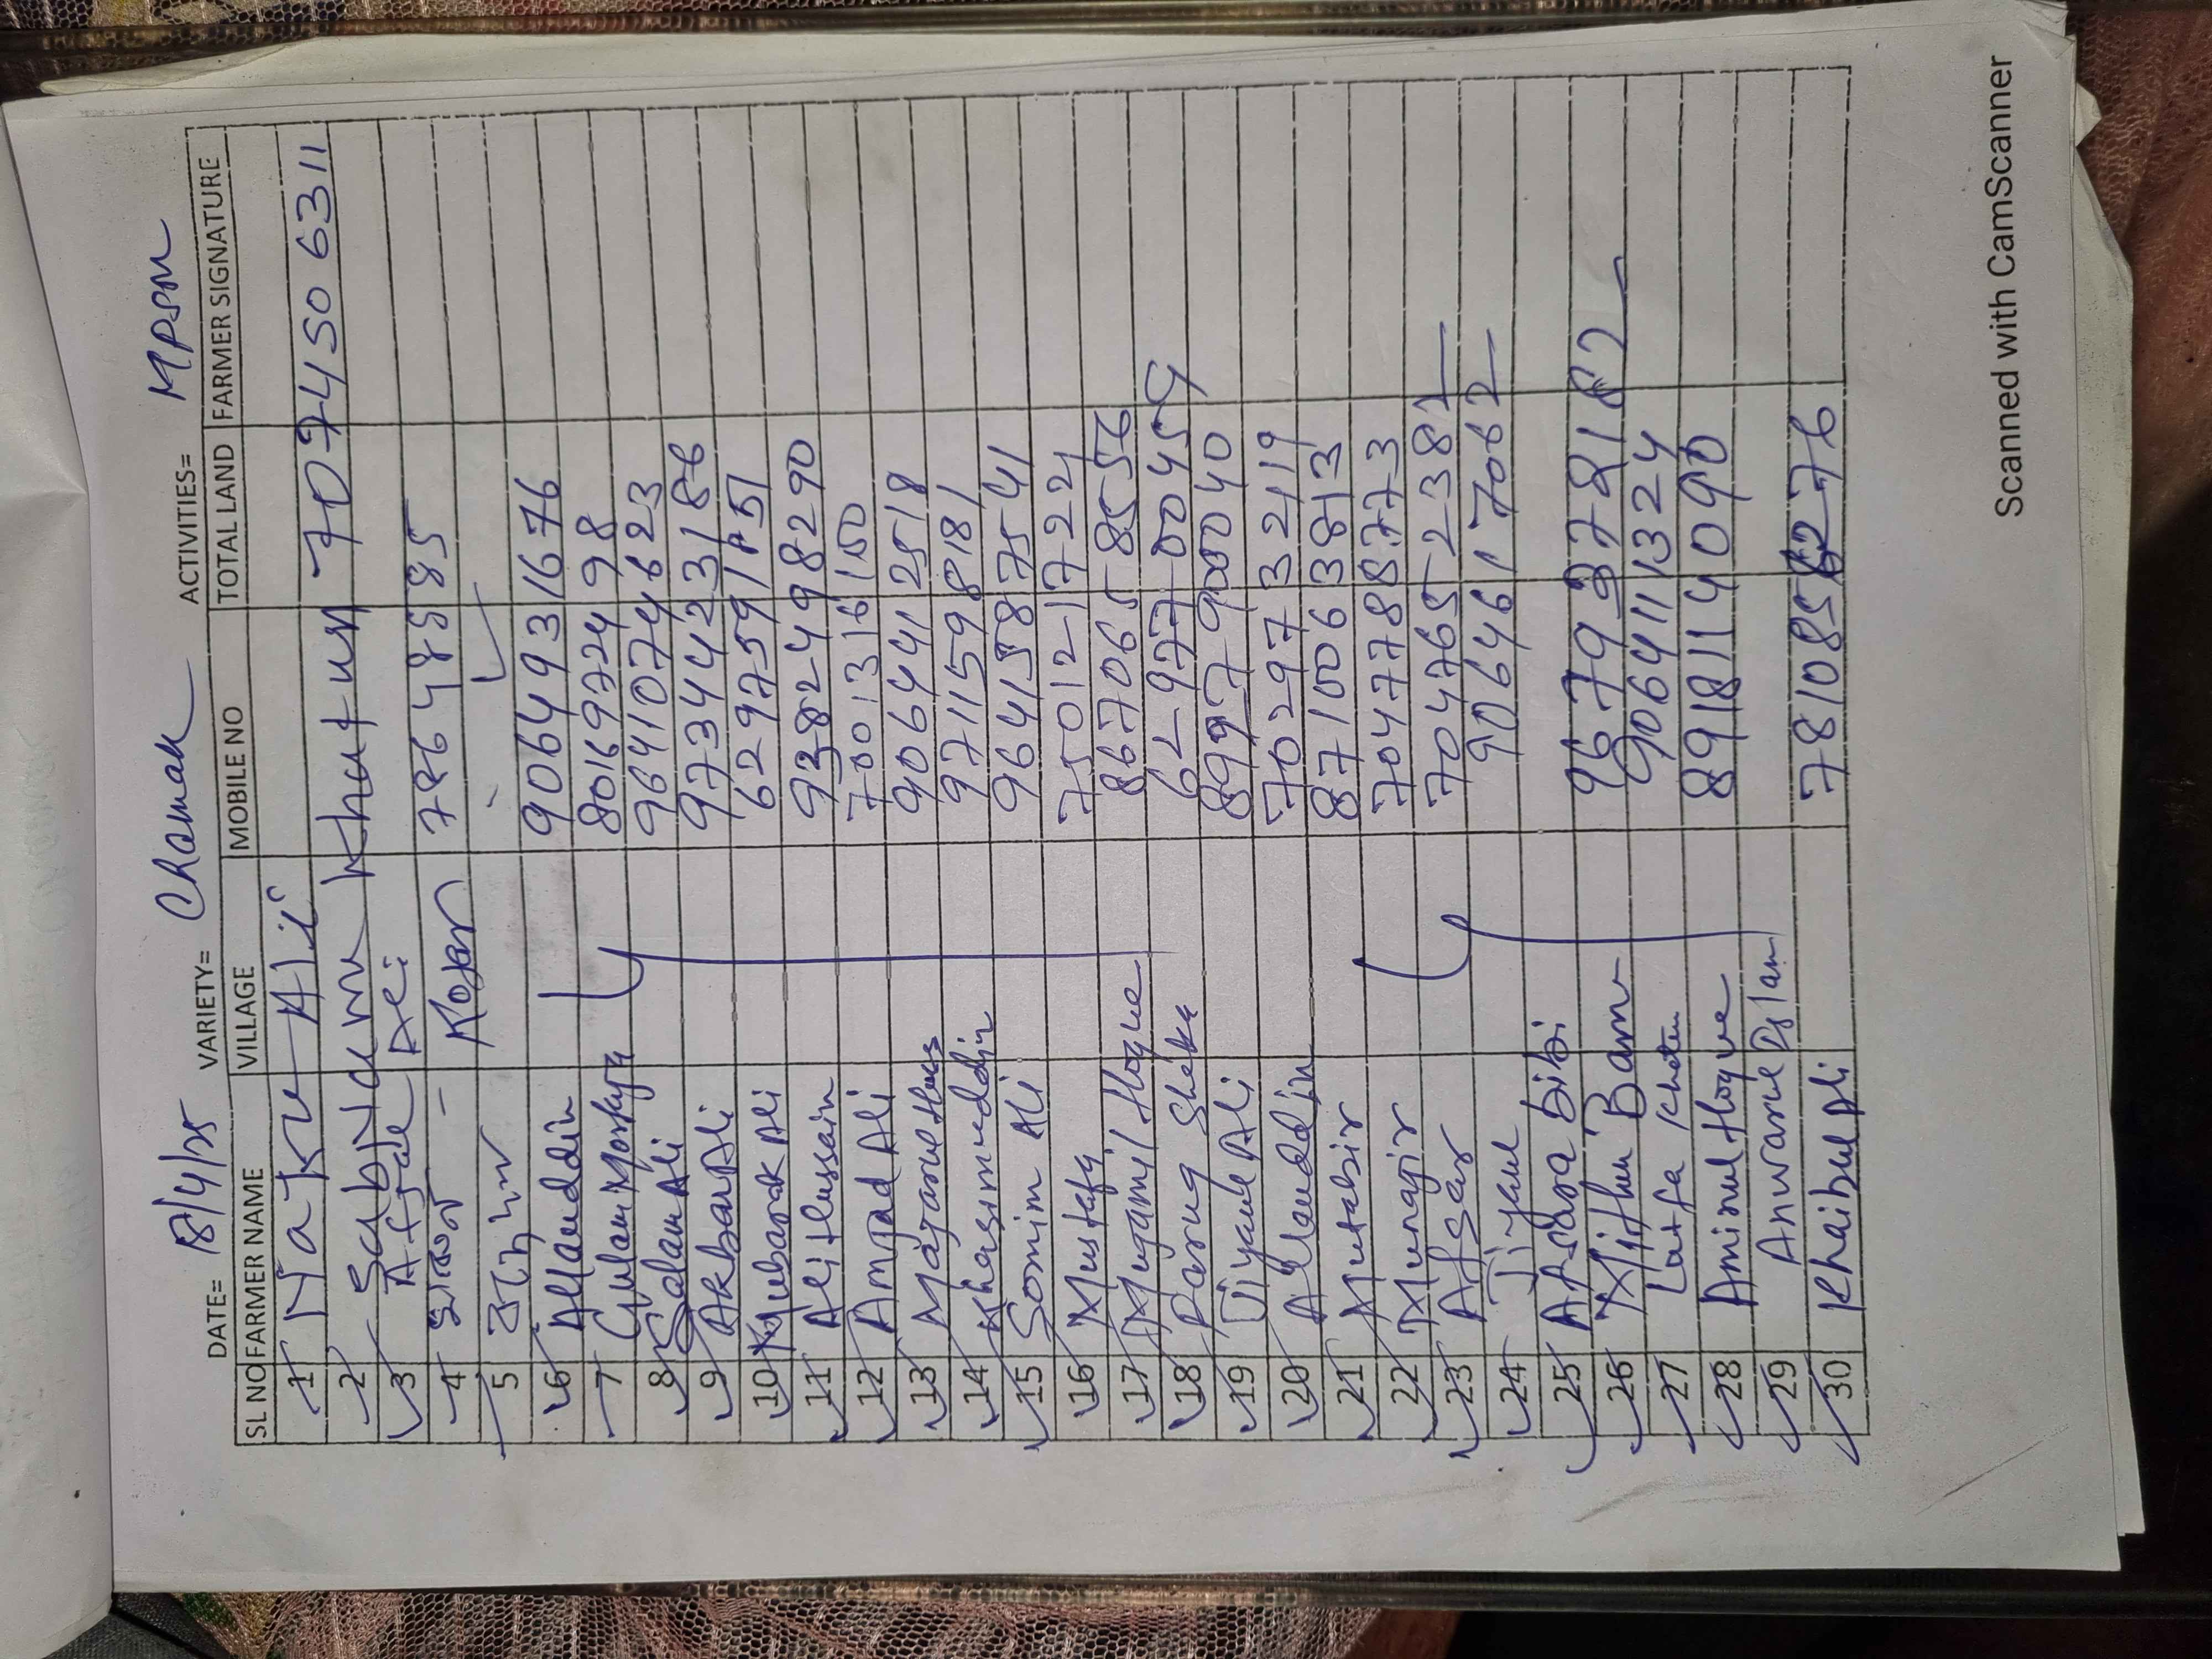 DATE= 18/4/25 VARIETY= Chamak ACTIVITIES= MPSM
SL NO FARMER NAME VILLAGE MOBILE NO TOTAL LAND FARMER SIGNATURE
1 Naku Ali
2 SabNam Khatun 7074506311
3 Afjal Ali
4 Kojar 7864858585
5
6 Allauddin 9064931676
7 Gulam 8016972498
8 Salam Ali 9641074623
9 Akbar Ali 9734423186
10 Mubarak Ali
11 Ali Hussain 9382498290
12 Amjad Ali 7001316150
13 9064412518
14 Khasimuddin 9711598181
15 Somim Ali 9641587541
16 Mustafy 7501217224
17 Mujamil Hoque 8670658556
18 Sheka 6297700459
19 Jiyaul Ali
20 Allauddin 7029732119
21 Mutabir 8710063813
22 Murajir 7047788773
23 Afsar 7047652382
24 Jiyaul 9064617062
25 Afsara Bibi
26 Mithu Banu 9679378182
27 Latfa Khatun 9064111324
28 Aminul Hoque 8918114090
29 Anwarul Islam
30 Khaibul Ali
Scanned with CamScanner